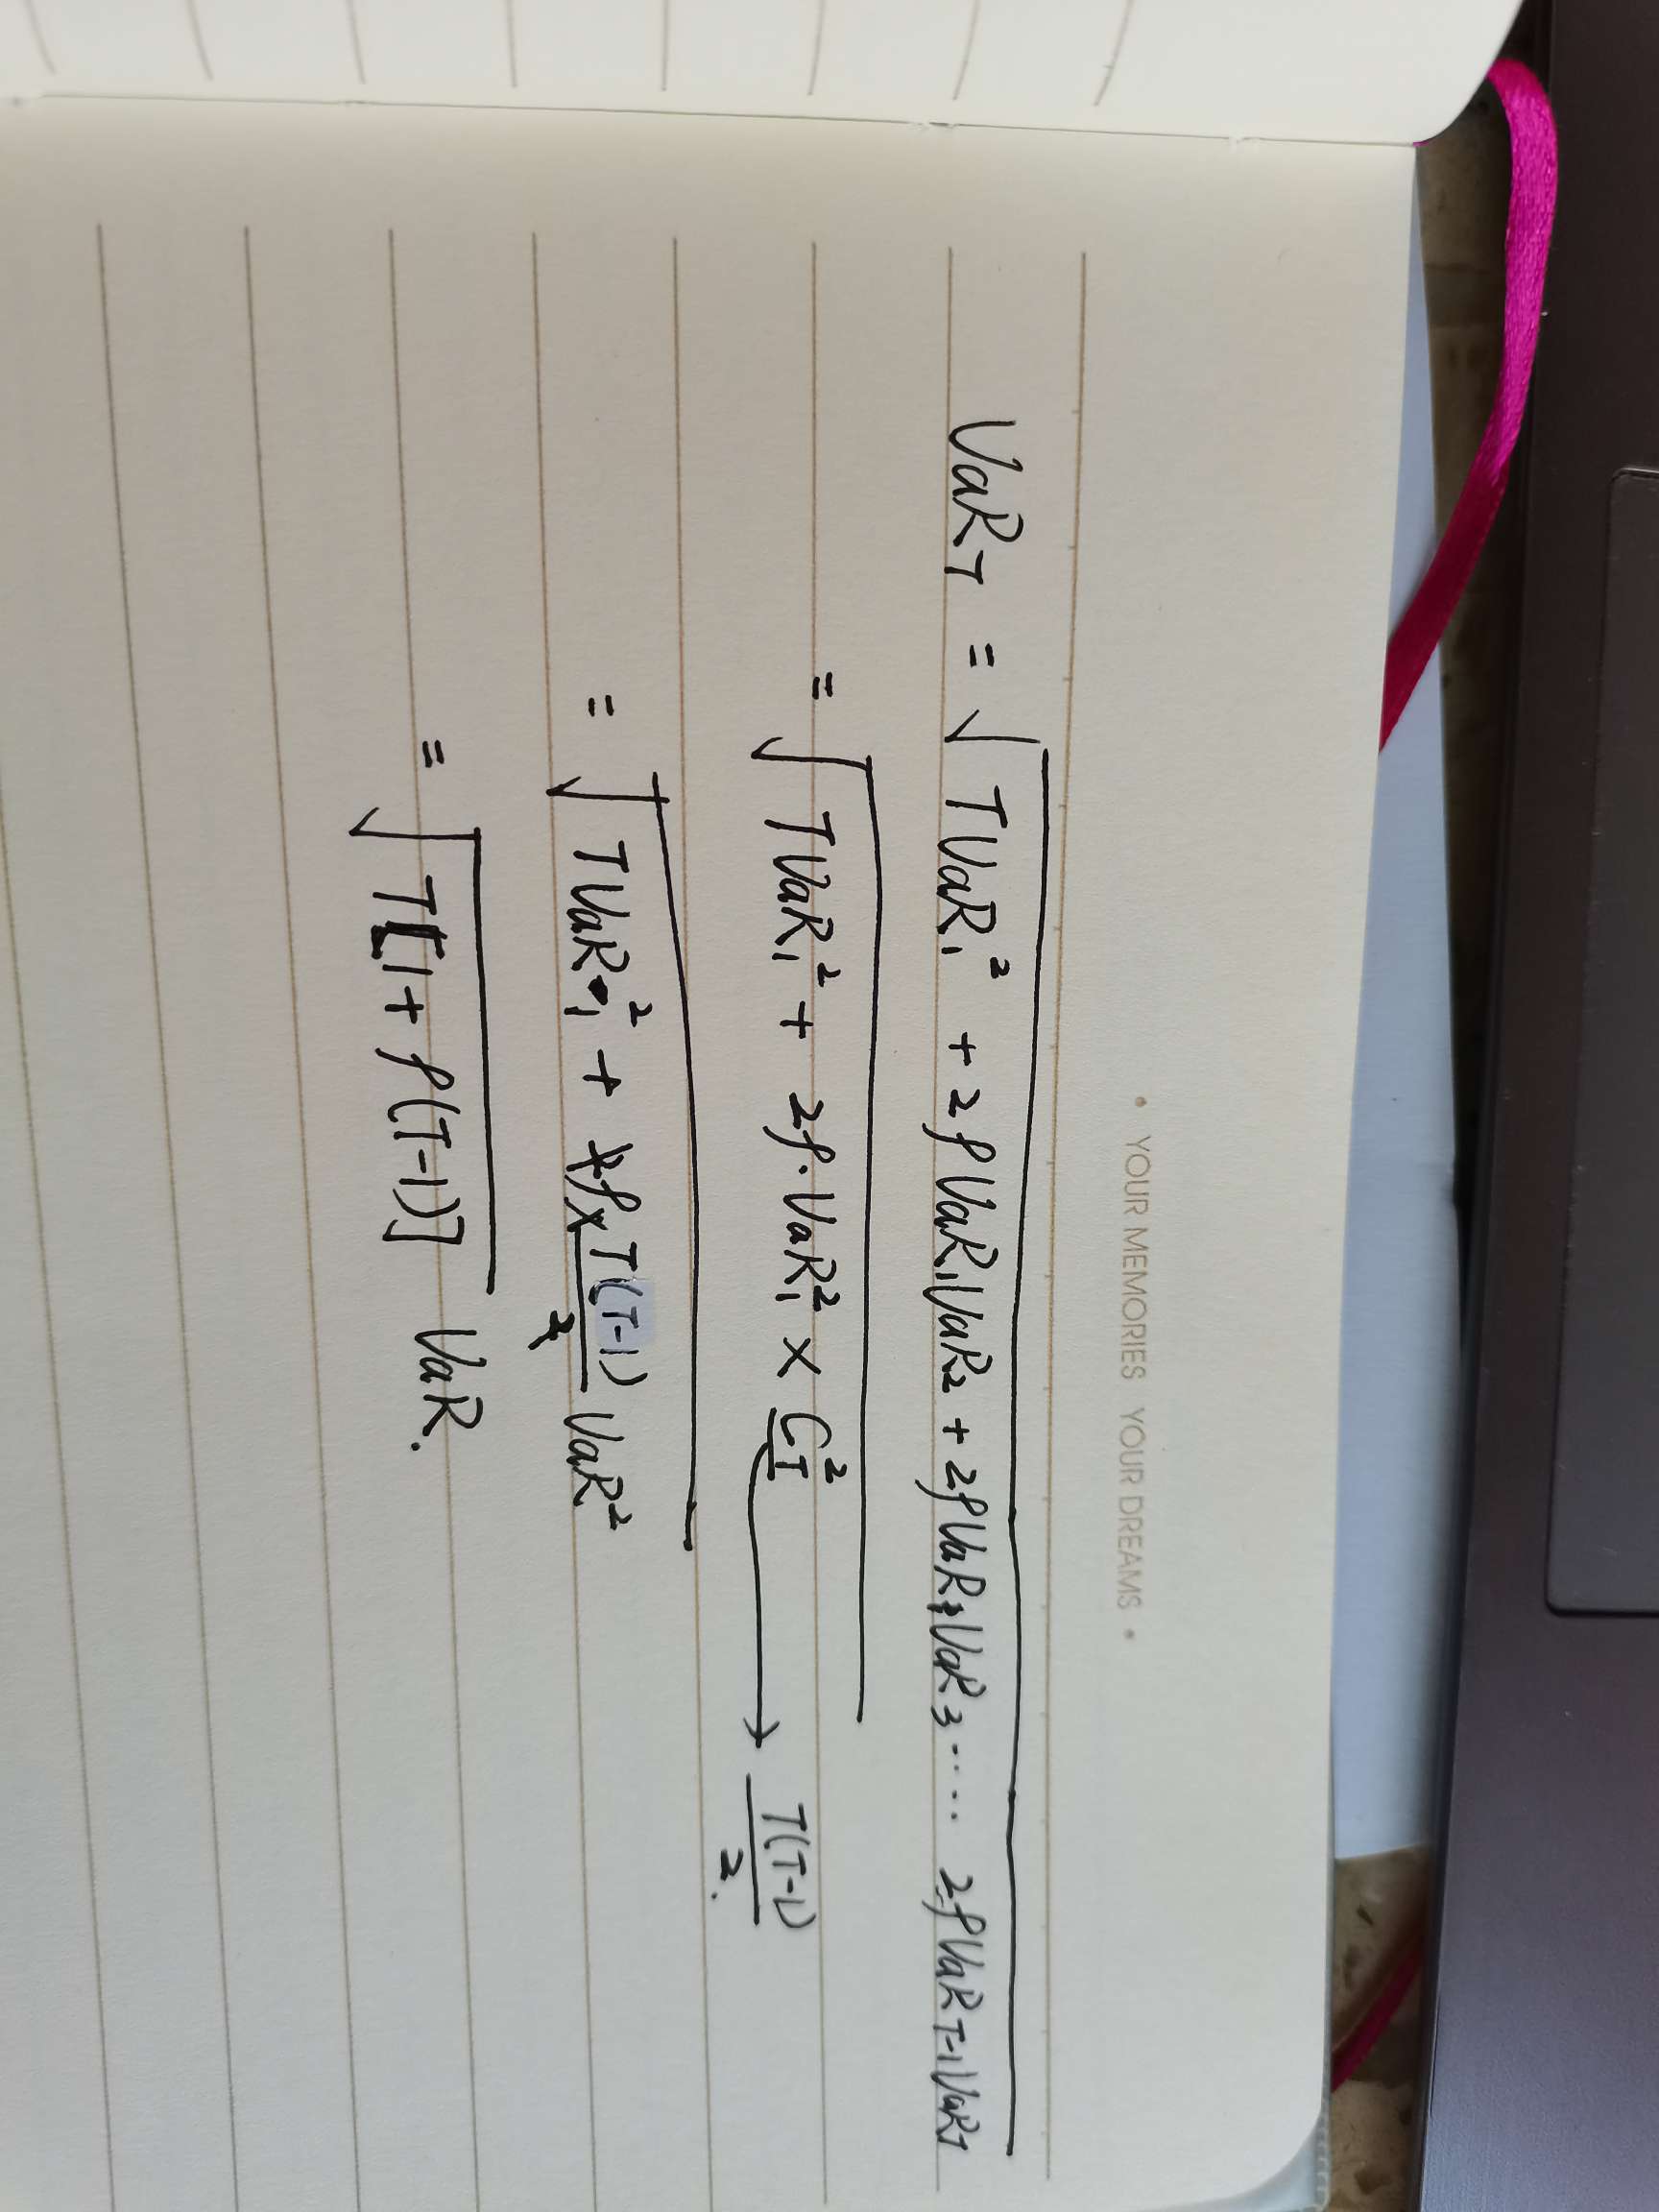 • YOUR MEMORIES YOUR DREAMS •
VaR_T = √(TVaR₁² + 2ρVaR₁VaR₂ + 2ρVaR₂VaR₃ ····· 2ρVaR_{T-1}VaR_T)
= √(TVaR₁² + 2ρ·VaR₁² × C_T²) → T(T-1)/2.
= √(TVaR₁² + 2ρ× T(T-1)/2 VaR²)
= √(T[1+ρ(T-1)]) VaR.